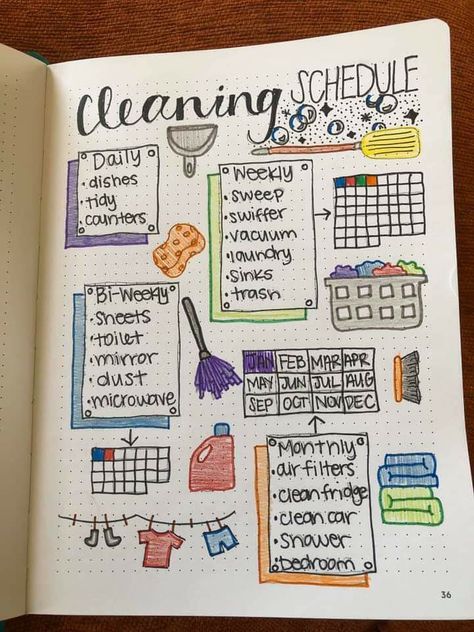 Cleaning SCHEDULE
Daily
• dishes
• tidy
• counters
Weekly
• sweep
• swiffer
• vacuum
• laundry
• sinks
• trash
Bi-Weekly
• sheets
• toilet
• mirror
• dust
• microwave
JAN FEB MAR APR
MAY JUN JUL AUG
SEP OCT NOV DEC
Monthly
• air filters
• clean fridge
• clean car
• shower
• bedroom
36